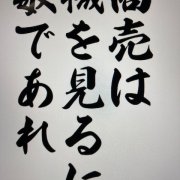 商売は
機を見るに
敏であれ